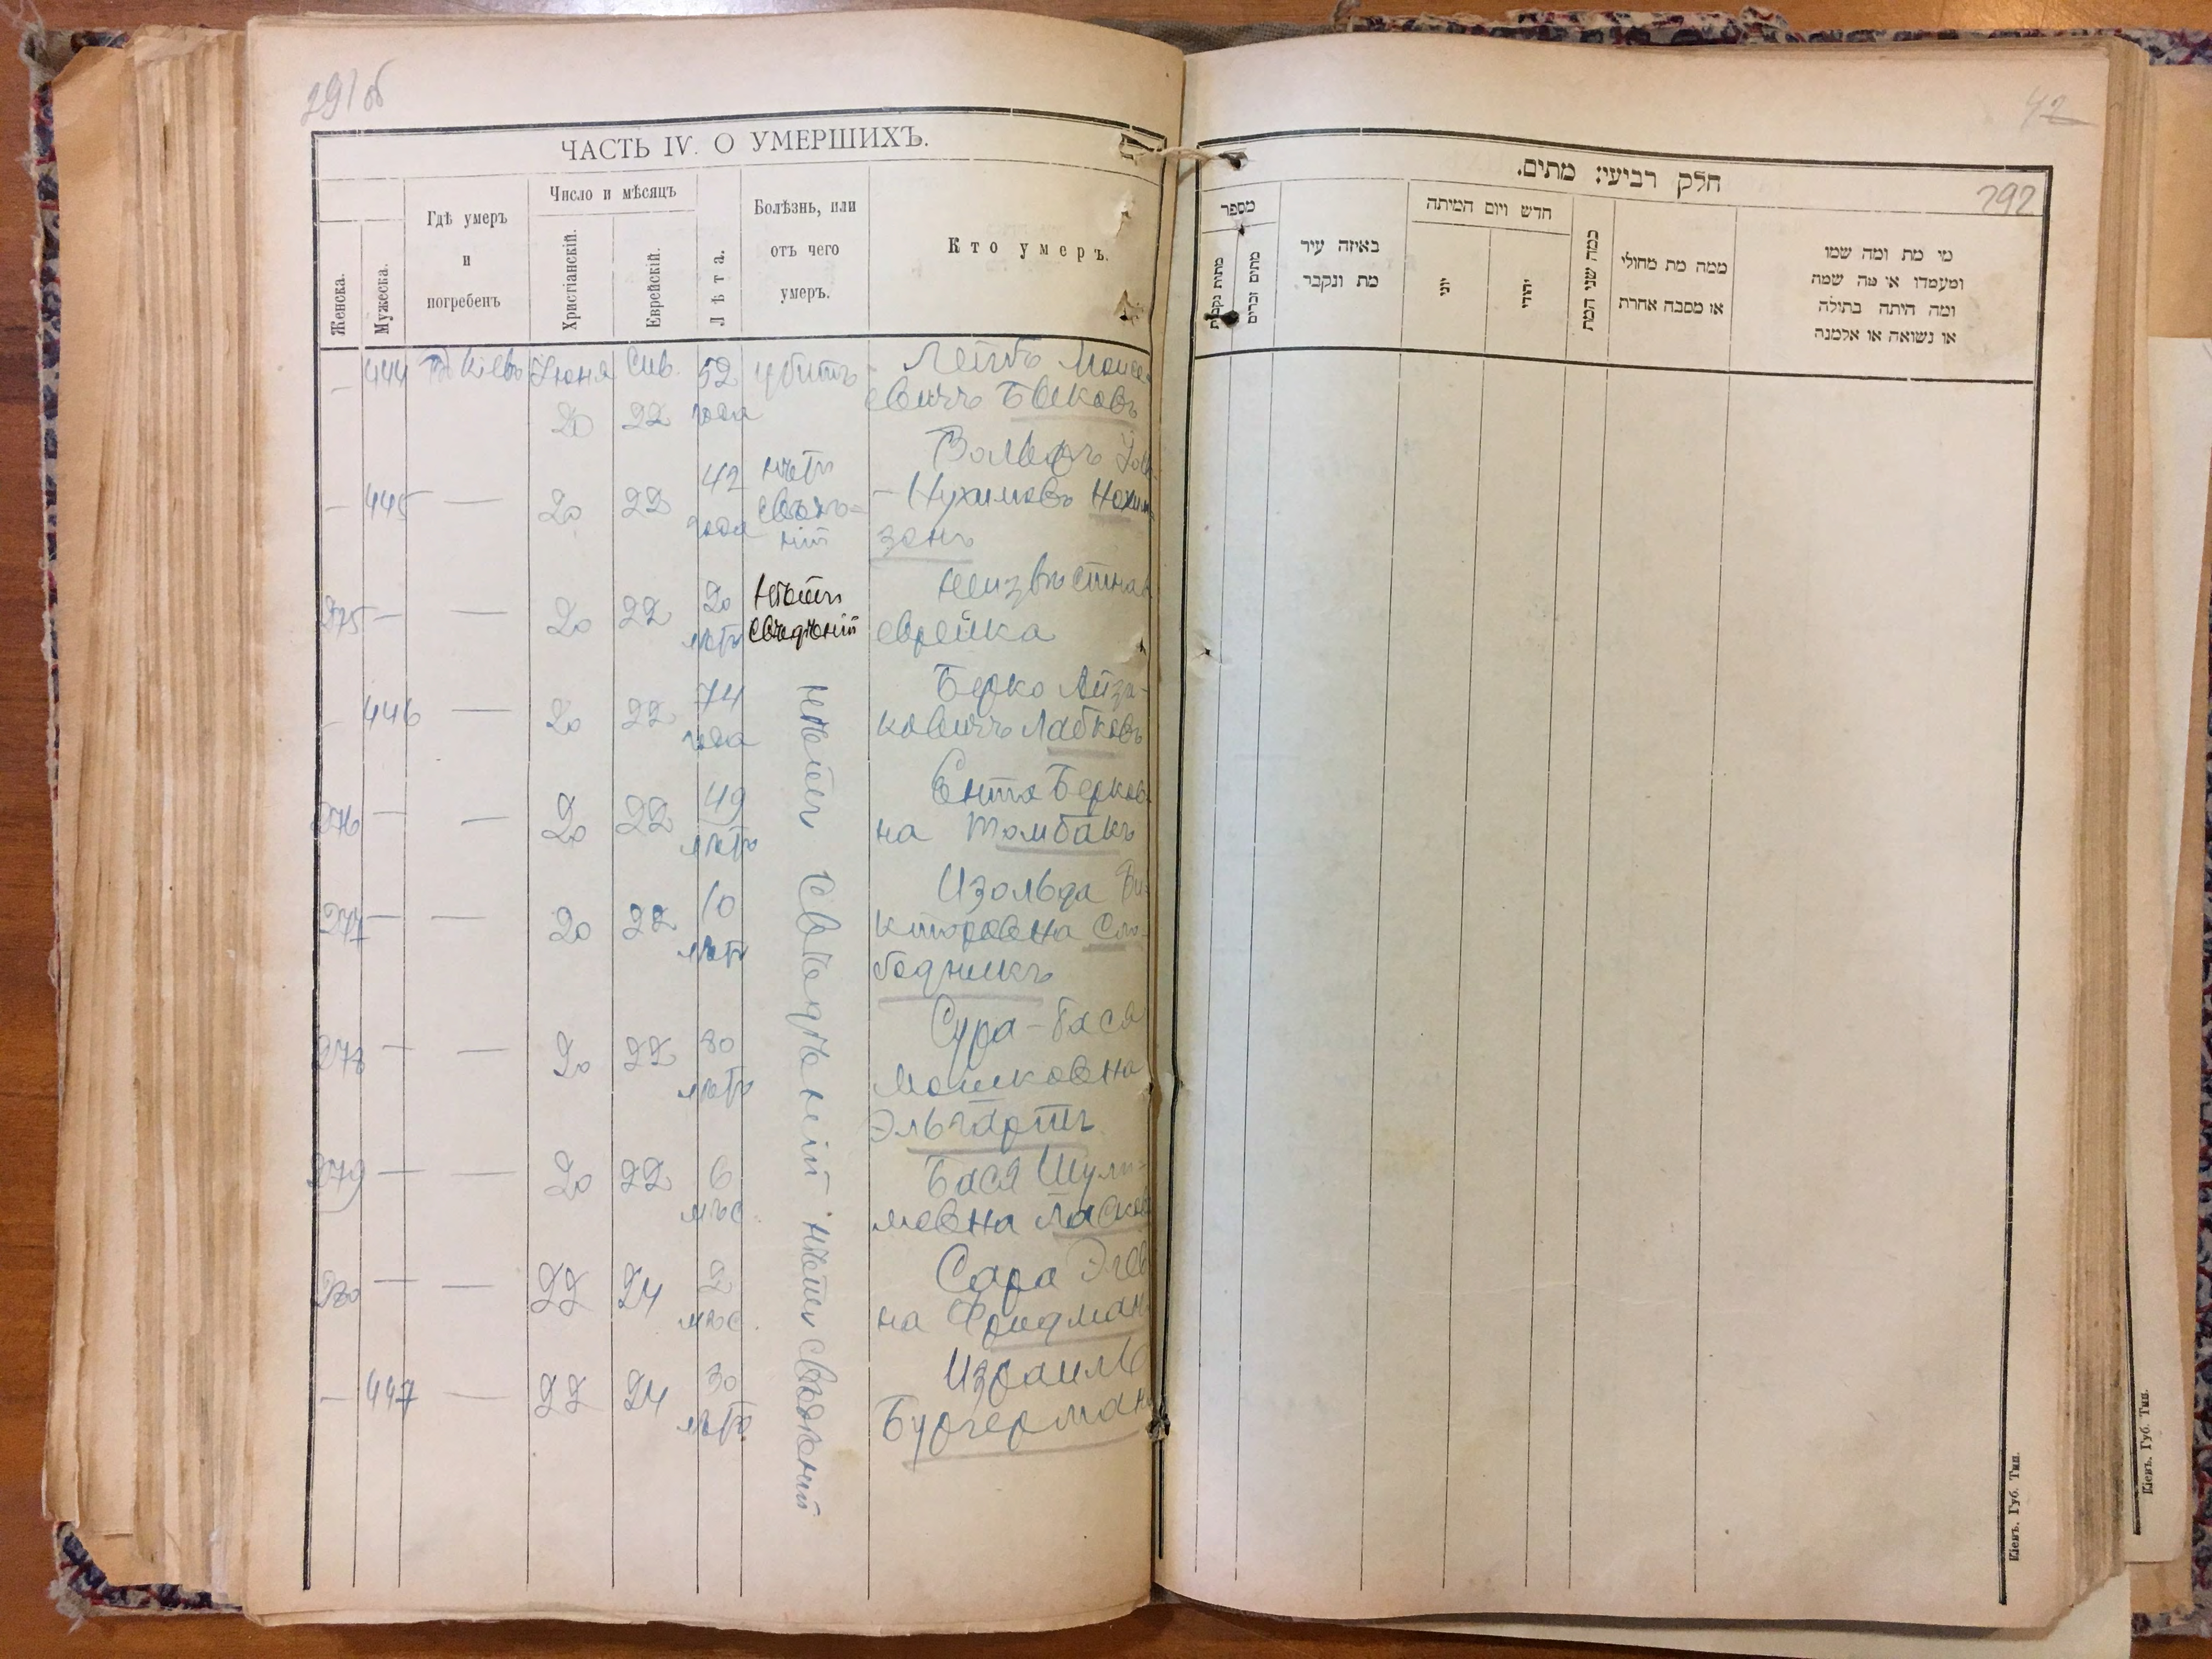 291 об
ЧАСТЬ IV. О УМЕРШИХЪ.
Женска.
Мужеска.
Гдѣ умеръ
и
погребенъ
Число и мѣсяцъ
Христіанскій.
Еврейскій.
Лѣта.
Болѣзнь, или
отъ чего
умеръ.
Кто умеръ.
— 444 Кіевъ Іюня Сив. 52 убитъ Лейбъ Моисе-
20 22 года евичъ Быковъ
Вольфъ
— 445 — 20 22 42 нѣтъ -Нухимовъ Нохим-
года свѣдѣ-
ній зонъ
275 — — 20 22 20 нѣтъ неизвѣстная
лѣтъ свѣдѣній еврейка
— 446 — 20 22 74 Берко Айзи-
года ковичъ Лабковъ
276 — — 20 22 49 Ента Берков
лѣтъ на Томбакъ
277 — — 20 22 10 Изольда Ви-
лѣтъ кторовна Сло-
бодникъ
278 — — 20 22 80 Сура-Бася
лѣтъ Мошковна
Эльгартъ
279 — — 20 22 6 Бася Шули-
мѣс. мовна
280 — — 22 24 2 Сара
мѣс. на Фридман
— 447 — 22 24 30 Израиль
лѣтъ Бургерман
нѣтъ свѣдѣній
нѣтъ свѣдѣній
42
292
חלק רביעי: מתים.
מספר
מתות נקבות
מתים זכרים
באיזה עיר
מת ונקבר
חדש ויום המיתה
יוני
יהודי
כמה שני המת
ממה מת מחולי
או מסבה אחרת
מי מת ומה שמו
ומעמדו או מה שמה
ומה היתה בתולה
או נשואה או אלמנה
Кіевъ. Губ. Тип.
Кіевъ. Губ. Тип.